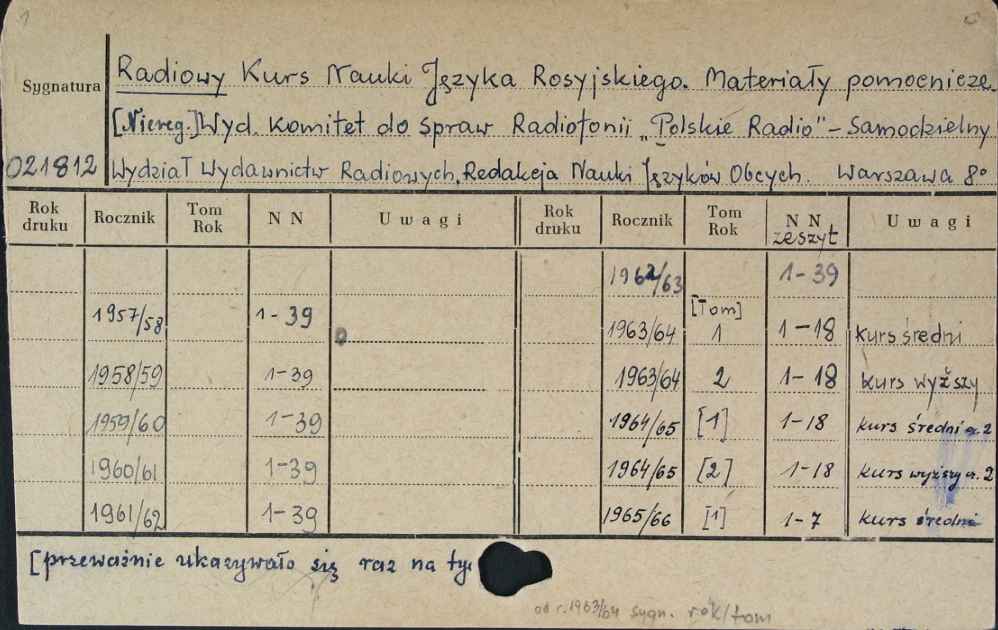 1
Radiowy Kurs Nauki Języka Rosyjskiego. Materiały pomocnicze.
Sygnatura
[Niereg.] Wyd. Komitet do Spraw Radiofonii „Polskie Radio" – Samodzielny
021812 Wydział Wydawnictw Radiowych. Redakcja Nauki Języków Obcych. Warszawa 8°
Rok druku Rocznik Tom Rok NN Uwagi Rok druku Rocznik Tom Rok NN zeszyt Uwagi
1962/63 1-39
1957/58 1-39 1963/64 [Tom] 1 1-18 kurs średni
1958/59 1-39 1963/64 2 1-18 kurs wyższy
1959/60 1-39 1964/65 [1] 1-18 kurs średni cz. 2
1960/61 1-39 1964/65 [2] 1-18 kurs wyższy cz. 2
1961/62 1-39 1965/66 [1] 1-7 kurs średni
[przeważnie ukazywało się raz na ty
od r. 1963/64 sygn. rok/tom